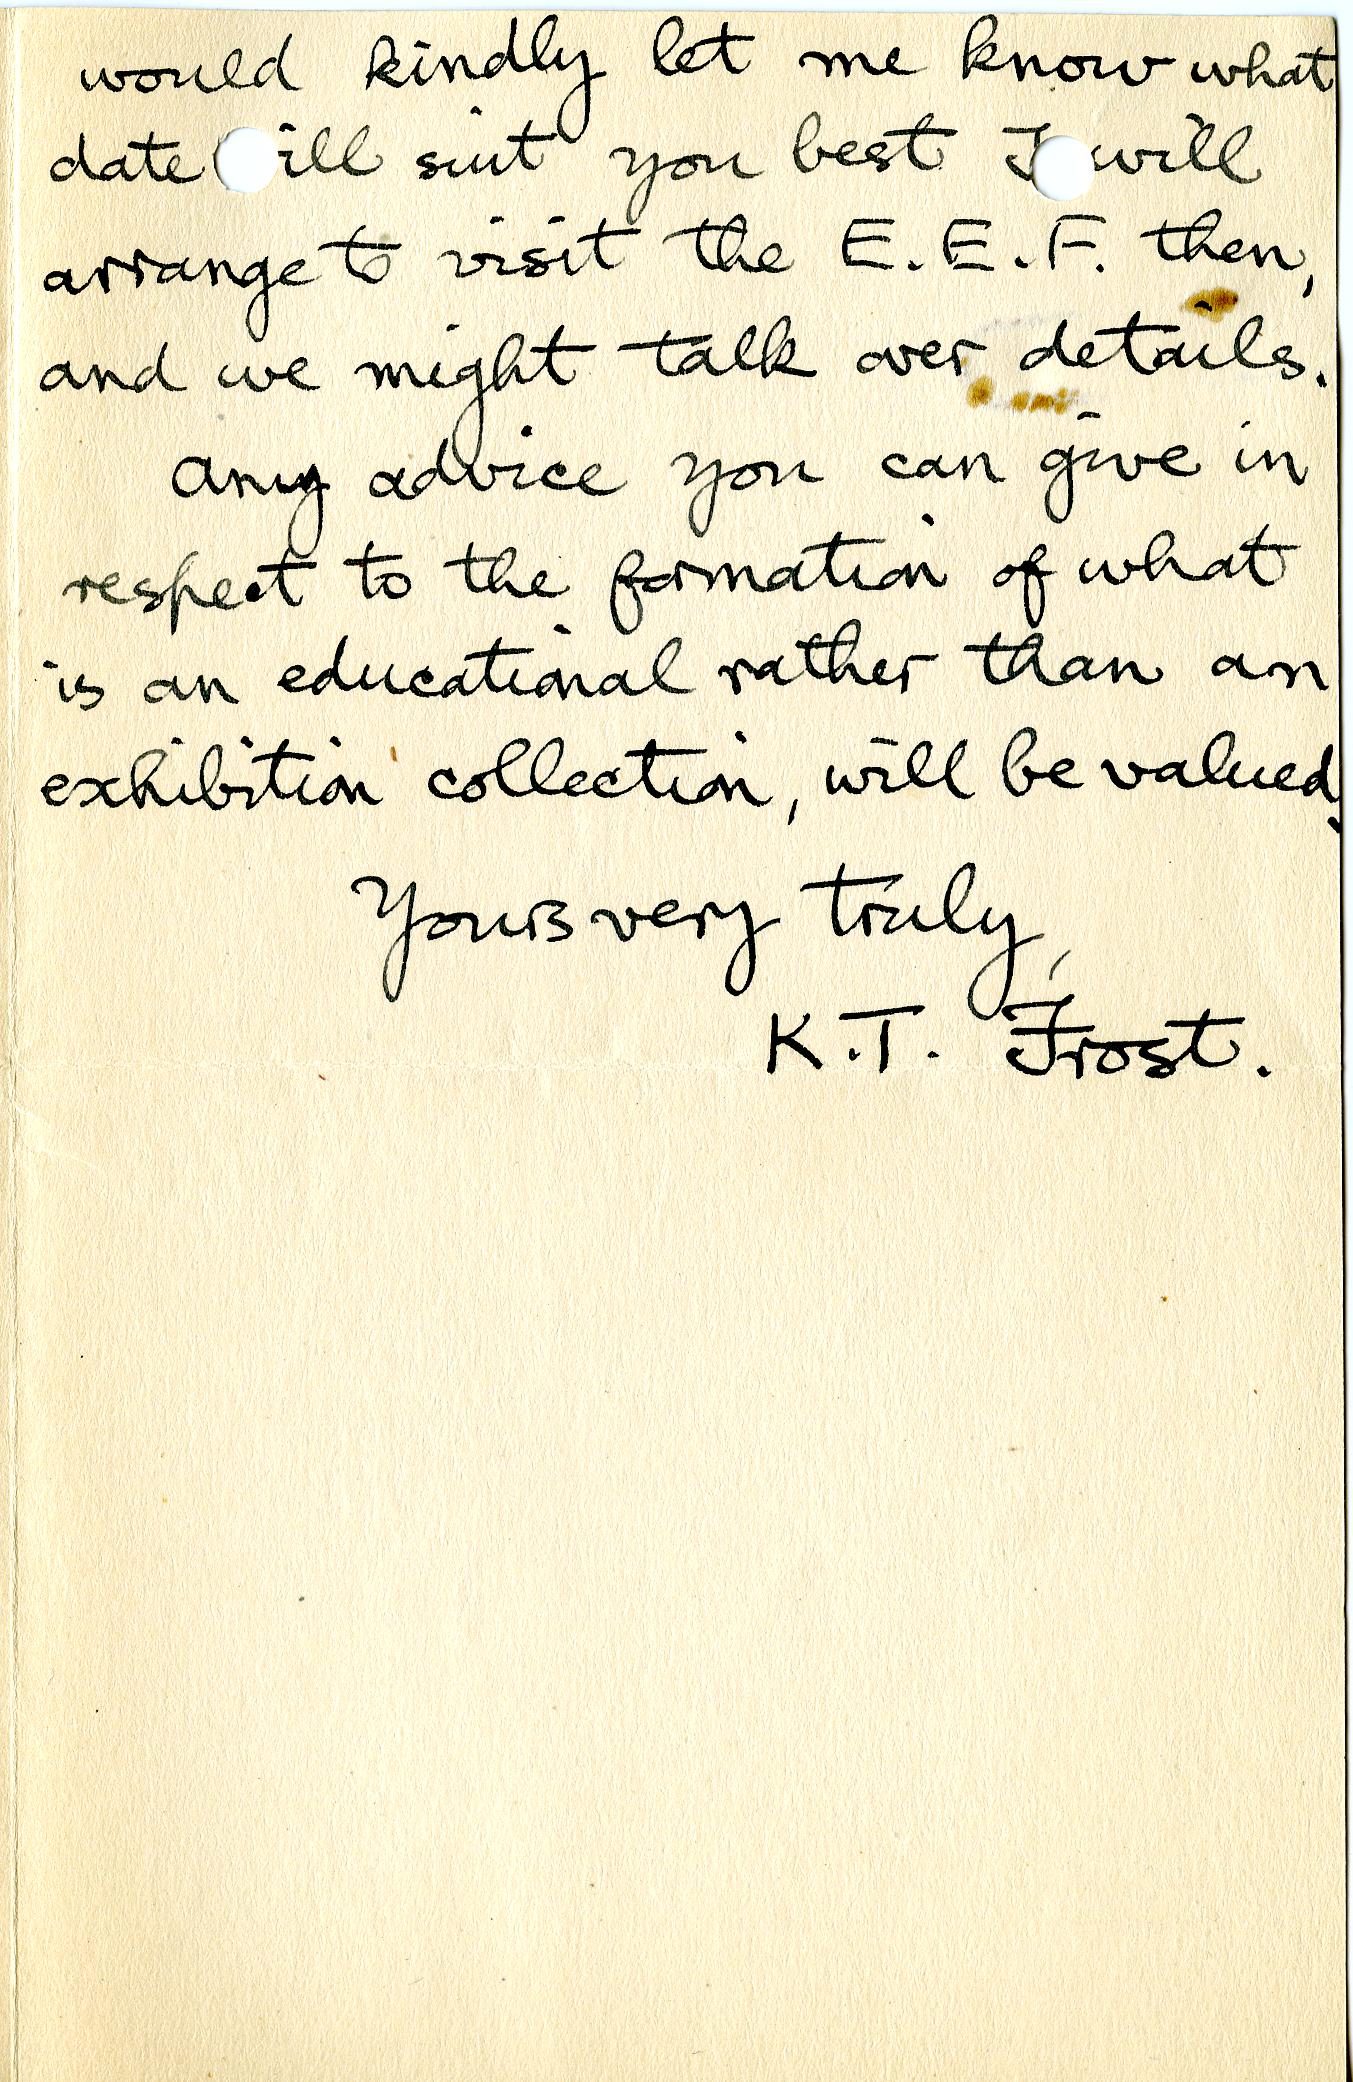 would kindly let me know what
date will suit you best I will
arrange to visit the E.E.F. then,
and we might talk over details.
Any advice you can give in
respect to the formation of what
is an educational rather than an
exhibition collection, will be valued.
Yours very truly,
K.T. Frost.